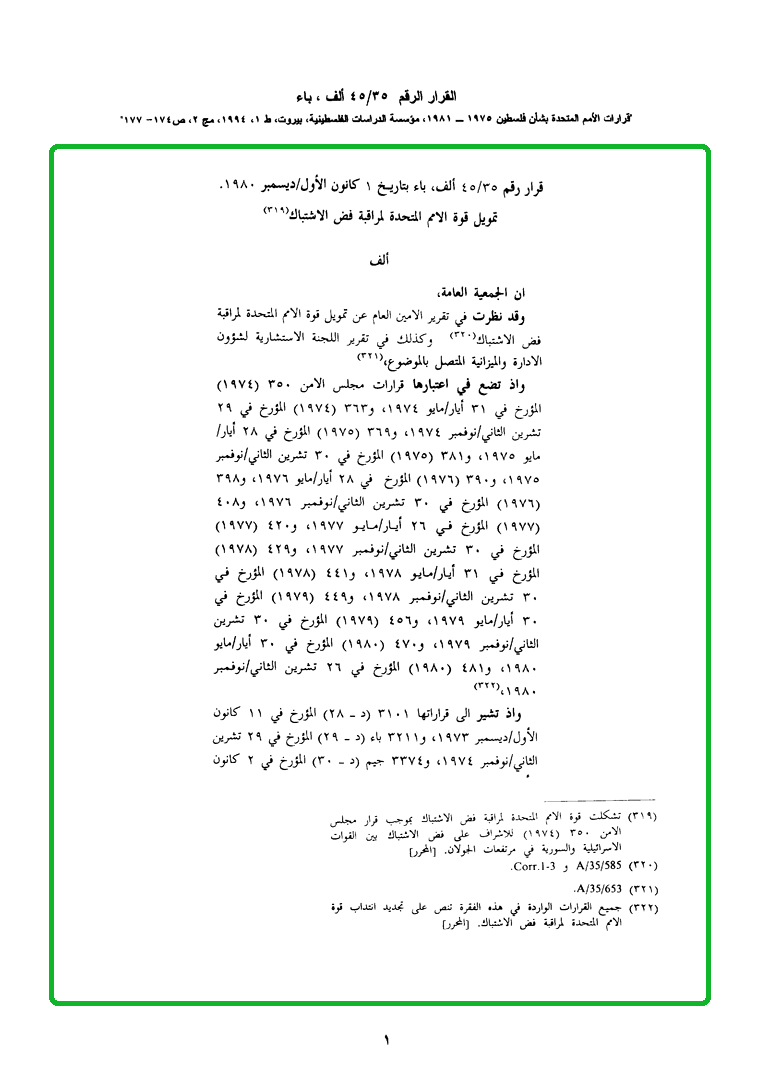 القرار الرقم ٤٥/٣٥ ألف ، باء
"قرارات الأمم المتحدة بشأن فلسطين ١٩٧٥ ــ ١٩٨١، مؤسسة الدراسات الفلسطينية، بيروت، ط ١، ١٩٩٤، مج ٢، ص ١٧٤- ١٧٧"
قرار رقم ٤٥/٣٥ ألف، باء بتاريخ ١ كانون الأول/ديسمبر ١٩٨٠.
تمويل قوة الامم المتحدة لمراقبة فض الاشتباك(٣١٩)
ألف
ان الجمعية العامة،
وقد نظرت في تقرير الامين العام عن تمويل قوة الامم المتحدة لمراقبة
فض الاشتباك(٣٢٠) وكذلك في تقرير اللجنة الاستشارية لشؤون
الادارة والميزانية المتصل بالموضوع،(٣٢١)
واذ تضع في اعتبارها قرارات مجلس الامن ٣٥٠ (١٩٧٤)
المؤرخ في ٣١ أيار/مايو ١٩٧٤، و٣٦٣ (١٩٧٤) المؤرخ في ٢٩
تشرين الثاني/نوفمبر ١٩٧٤، و٣٦٩ (١٩٧٥) المؤرخ في ٢٨ أيار/
مايو ١٩٧٥، و٣٨١ (١٩٧٥) المؤرخ في ٣٠ تشرين الثاني/نوفمبر
١٩٧٥، و٣٩٠ (١٩٧٦) المؤرخ في ٢٨ أيار/مايو ١٩٧٦، و٣٩٨
(١٩٧٦) المؤرخ في ٣٠ تشرين الثاني/نوفمبر ١٩٧٦، و٤٠٨
(١٩٧٧) المؤرخ في ٢٦ أيار/مايو ١٩٧٧، و٤٢٠ (١٩٧٧)
المؤرخ في ٣٠ تشرين الثاني/نوفمبر ١٩٧٧، و٤٢٩ (١٩٧٨)
المؤرخ في ٣١ أيار/مايو ١٩٧٨، و٤٤١ (١٩٧٨) المؤرخ في
٣٠ تشرين الثاني/نوفمبر ١٩٧٨، و٤٤٩ (١٩٧٩) المؤرخ في
٣٠ أيار/مايو ١٩٧٩، و٤٥٦ (١٩٧٩) المؤرخ في ٣٠ تشرين
الثاني/نوفمبر ١٩٧٩، و٤٧٠ (١٩٨٠) المؤرخ في ٣٠ أيار/مايو
١٩٨٠، و٤٨١ (١٩٨٠) المؤرخ في ٢٦ تشرين الثاني/نوفمبر
١٩٨٠،(٣٢٢)
واذ تشير الى قراراتها ٣١٠١ (د ـ ٢٨) المؤرخ في ١١ كانون
الأول/ديسمبر ١٩٧٣، و٣٢١١ باء (د ـ ٢٩) المؤرخ في ٢٩ تشرين
الثاني/نوفمبر ١٩٧٤، و٣٣٧٤ جيم (د ـ ٣٠) المؤرخ في ٢ كانون
(٣١٩) تشكلت قوة الامم المتحدة لمراقبة فض الاشتباك بموجب قرار مجلس
الامن ٣٥٠ (١٩٧٤) للاشراف على فض الاشتباك بين القوات
الاسرائيلية والسورية في مرتفعات الجولان. [المحرر]
(٣٢٠) A/35/585 و Corr.1-3.
(٣٢١) A/35/653.
(٣٢٢) جميع القرارات الواردة في هذه الفقرة تنص على تجديد انتداب قوة
الامم المتحدة لمراقبة فض الاشتباك. [المحرر]
١